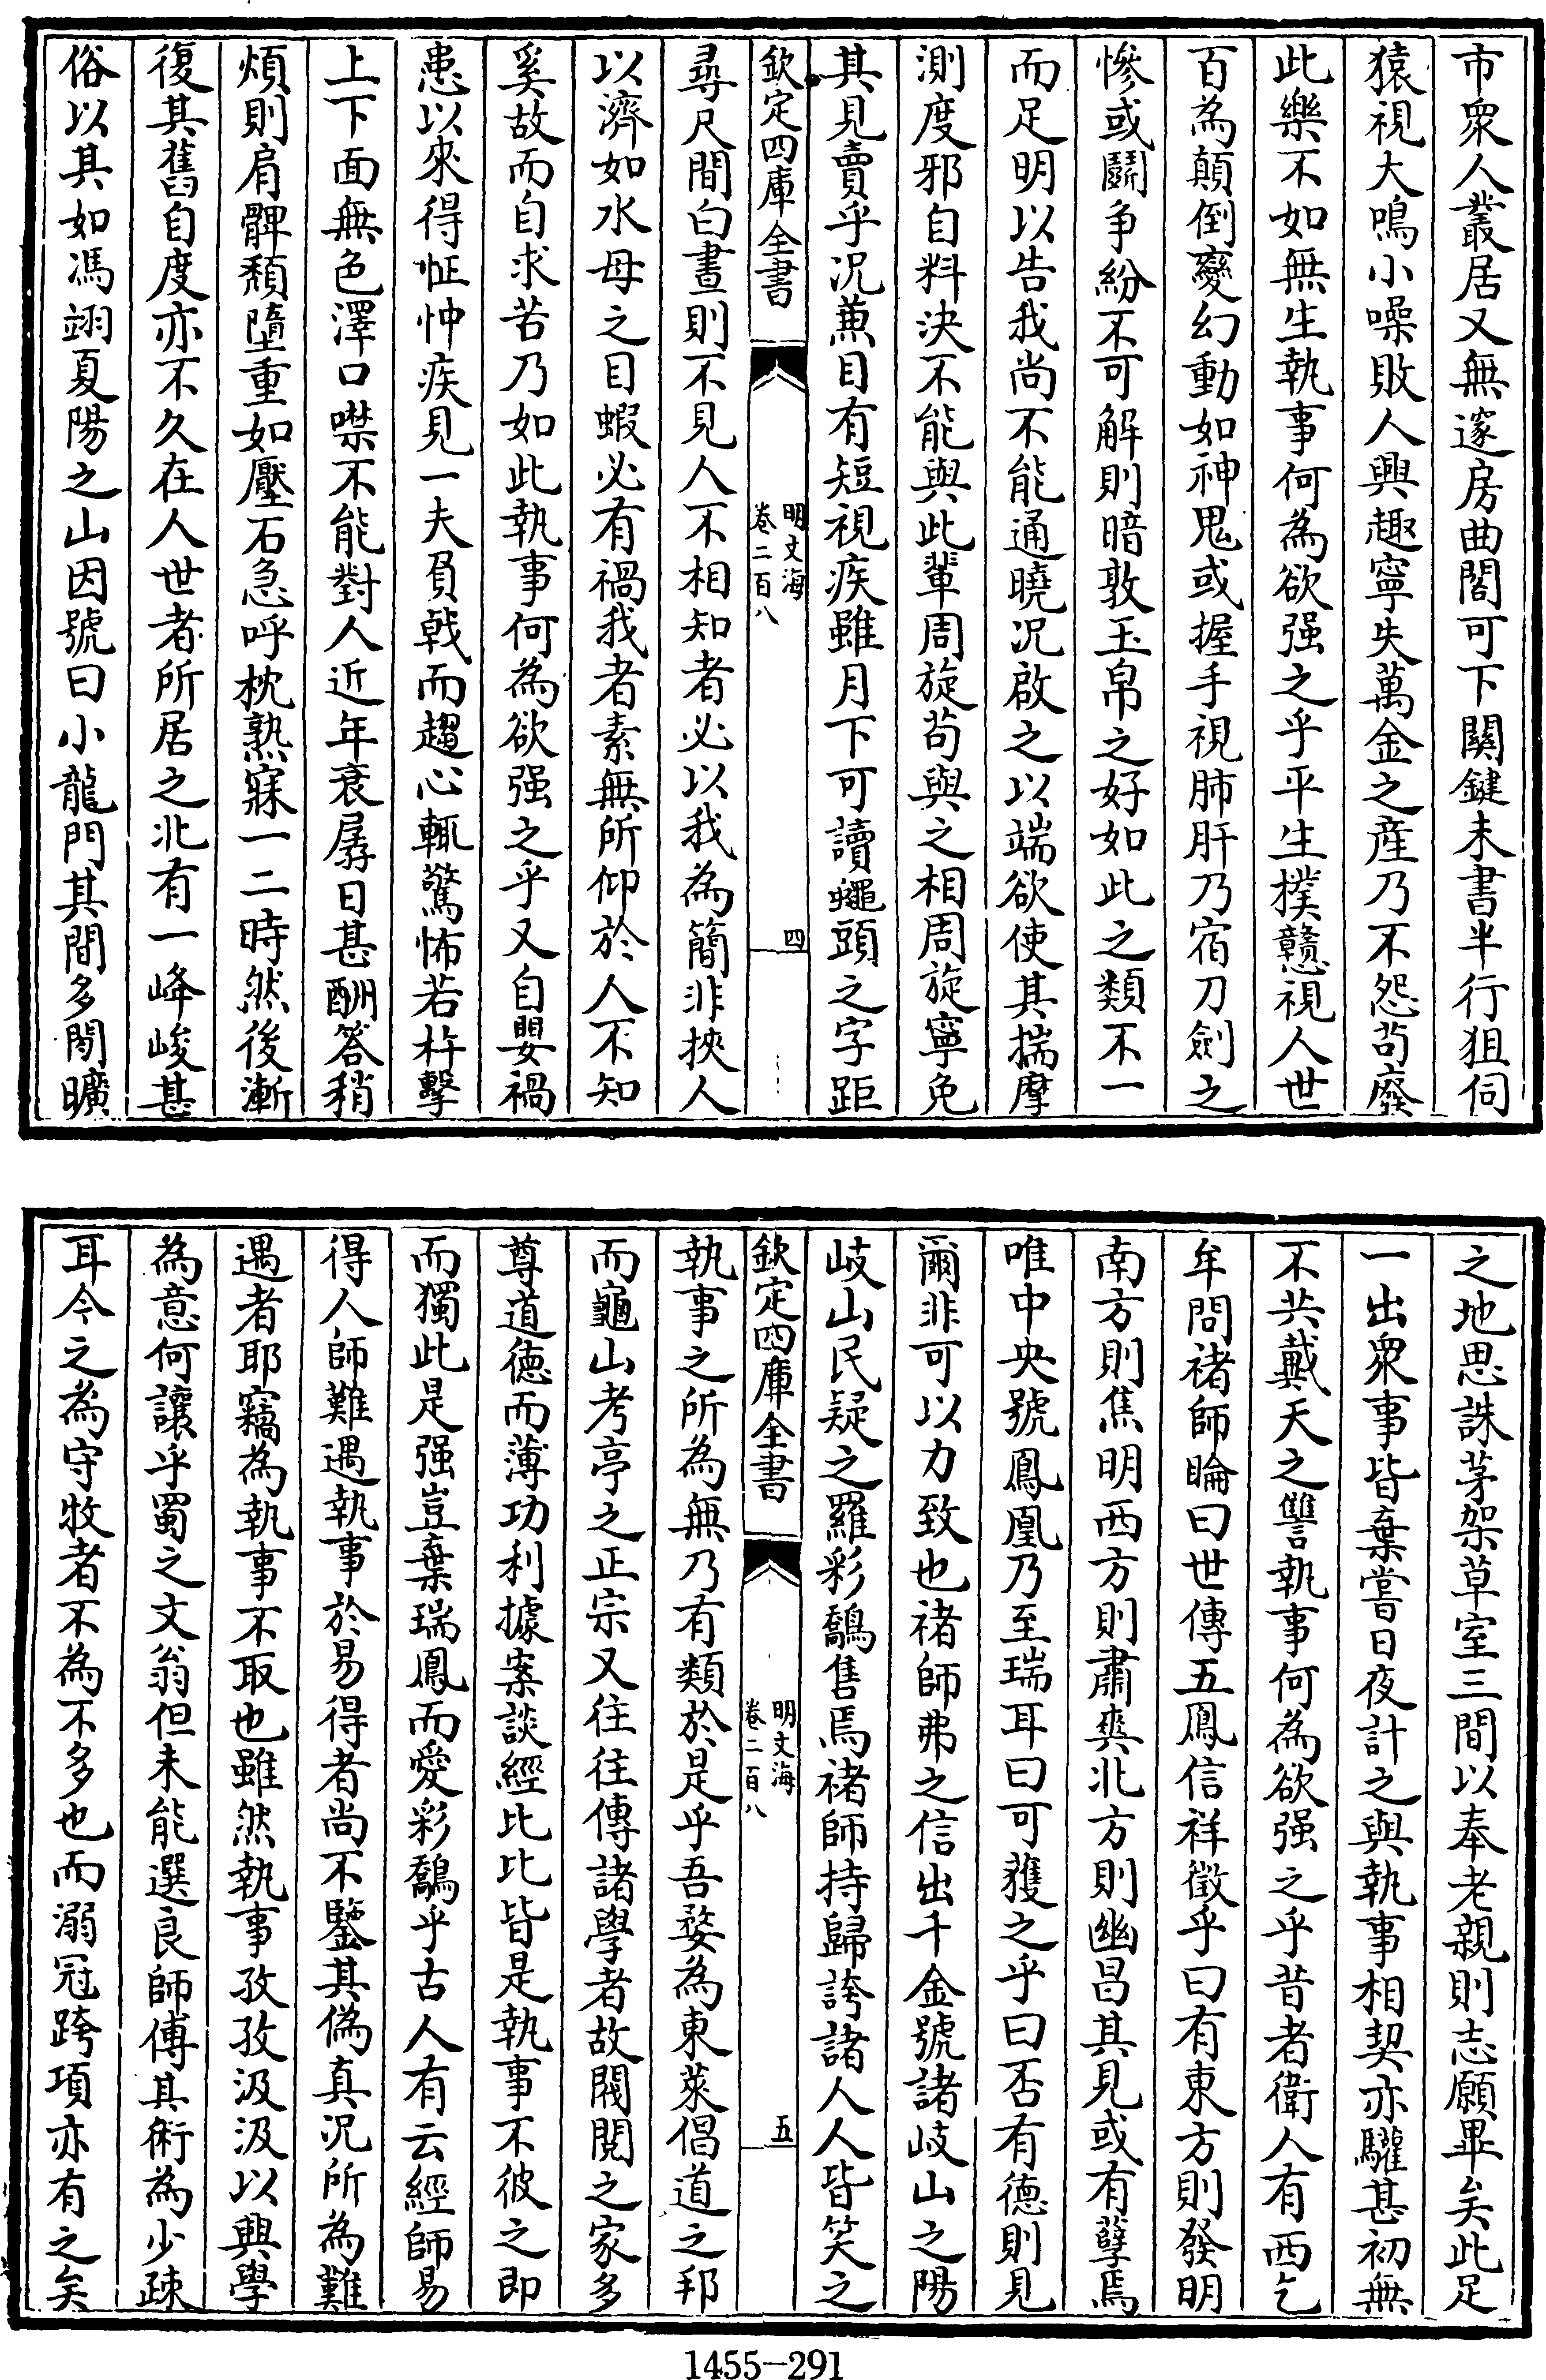 市衆人叢居又無邃房曲閣可下關鍵未書半行狙伺
猿視大鳴小噪敗人興趣寧失萬金之産乃不怨苟廢
此樂不如無生執事何為欲强之乎平生撲戇視人世
百為顛倒變幻動如神鬼或握手視肺肝乃宿刀劍之
慘或鬭爭紛不可解則暗敦玉帛之好如此之類不一
而足明以告我尚不能通曉况啟之以端欲使其揣摩
測度邪自料決不能與此輩周旋苟與之相周旋寧免
其見賣乎况兼目有短視疾雖月下可讀蠅頭之字距
欽定四庫全書
明文海
卷二百八
四
尋尺間白晝則不見人不相知者必以我為簡非挾人
以濟如水母之目蝦必有禍我者素無所仰於人不知
奚故而自求苦乃如此執事何為欲强之乎又自嬰禍
患以來得怔忡疾見一夫負戟而趨心輒驚怖若杵擊
上下面無色澤口噤不能對人近年衰孱日甚酬答稍
煩則肩髀頽墮重如壓石急呼枕熟寐一二時然後漸
復其舊自度亦不久在人世者所居之北有一峰峻甚
俗以其如馮翊夏陽之山因號曰小龍門其間多閒曠
之地思誅茅架草室三間以奉老親則志願畢矣此足
一出衆事皆棄嘗日夜計之與執事相契亦驩甚初無
不共戴天之讐執事何為欲强之乎昔者衛人有西乞
牟問褚師睔曰世傳五鳳信祥徵乎曰有東方則發明
南方則焦明西方則肅爽北方則幽昌其見或有孽焉
唯中央號鳳凰乃至瑞耳曰可獲之乎曰否有德則見
爾非可以力致也褚師弗之信出千金號諸岐山之陽
岐山民疑之羅彩鷸售焉褚師持歸誇諸人人皆笑之
欽定四庫全書
明文海
卷二百八
五
執事之所為無乃有類於是乎吾婺為東萊倡道之邦
而龜山考亭之正宗又往往傳諸學者故閥閱之家多
尊道德而薄功利據案談經比比皆是執事不彼之即
而獨此是强豈棄瑞鳳而愛彩鷸乎古人有云經師易
得人師難遇執事於易得者尚不鑒其偽真况所為難
遇者耶竊為執事不取也雖然執事孜孜汲汲以興學
為意何讓乎蜀之文翁但未能選良師傅其術為少疎
耳今之為守牧者不為不多也而溺冠跨項亦有之矣
1455-291